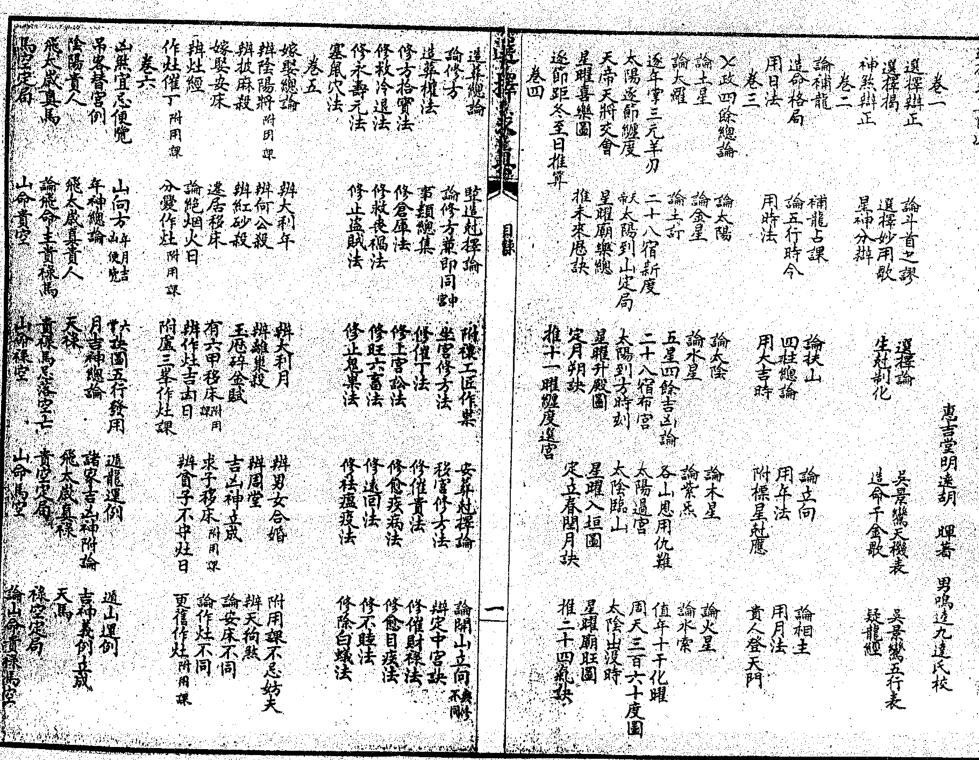 惠吉堂明遠胡 暉著 男鳴遠九達氏校
卷一
選擇辨正 論斗首之謬 選擇論 吳景鸞天機表 吳景鸞五行表
選擇揭 選擇妙用歌 生尅制化 造命千金歌 疑龍經
神煞辨正 星神分辨
卷二
論補龍 補龍古課 論扶山 論立向 論相主
造命格局 論五行時令 四柱總論 用年法 用月法
用日法 用時法 用大吉時 附標星尅應 貴人登天門
卷三
七政四餘總論 論太陽 論太陰 論木星 論火星
論土星 論金星 論水星 論紫炁 論水索
論大羅 論土計 五星四餘吉凶論 各山恩用仇難 值年十干化曜
逐年掌三元羊刃 二十八宿新度 二十八宿布宮 太陽過宮 周天三百六十度圖
太陽逐節纏度 太陽到山定局 太陽到方時刻 太陰臨山 太陰出沒時
天帝天將交會 星曜廟樂總 星曜升殿圖 星曜入垣圖 星曜廟旺圖
星曜喜樂圖 推未來曆訣 定月朔訣 定立春閏月訣 推二十四氣訣
逐節距冬至日推算 推十一曜纏度過宮
卷四
選擇求真
目錄
一
造葬總論 豎造尅擇論 附禳工匠作祟 安葬尅擇論 論開山立向與修不同
論修方 論修方兼即同宮中 坐宮修方法 移宮修方法 辨定中宮訣
造葬權法 事類總集 修催丁法 修催貴法 修催財祿法
修方拾寶法 修倉庫法 修上官訟法 修愈疾病法 修愈目疾法
修救冷退法 修救喪禍法 修旺六畜法 修遠回法 修不睦法
修永壽元法 修止盜賊法 修止鬼祟法 修祛瘟疫法 修除白蟻法
塞風穴法
卷五
嫁娶總論 辨大利年 辨大利月 辨男女合婚 附用課不忌妨夫
辨陰陽將附用課 辨何公殺 辨離巢殺 辨周堂 辨天狗煞
辨披麻殺 辨紅砂殺 玉曆碎金賦 吉凶神立成 論安床不同
嫁娶安床 遷居移床 有六甲移床附用課 求子移床附用課 論作灶不同
辨灶經 論絕烟火日 辨作灶吉凶日 辨貧子不中灶日 更信作灶附用課
作灶催丁附用課 分爨作灶附用課 附盧三舉作灶課
卷六
凶煞宜忌便覽 山向方年月吉凶便覽 六十掌訣圖五行發用 遁龍運例 遁山運例
吊客替宮例 年神總論 月吉神總論 諸家吉凶神附論 吉神義例立成
陰陽貴人 飛太歲真貴人 天祿 飛太歲真祿 天馬
飛太歲真馬 論飛命主貴祿馬 貴祿馬忌落空亡 貴空定局 祿空定局
馬空定局 山命貴空 山命祿空 山命馬空 論山命貴祿馬空